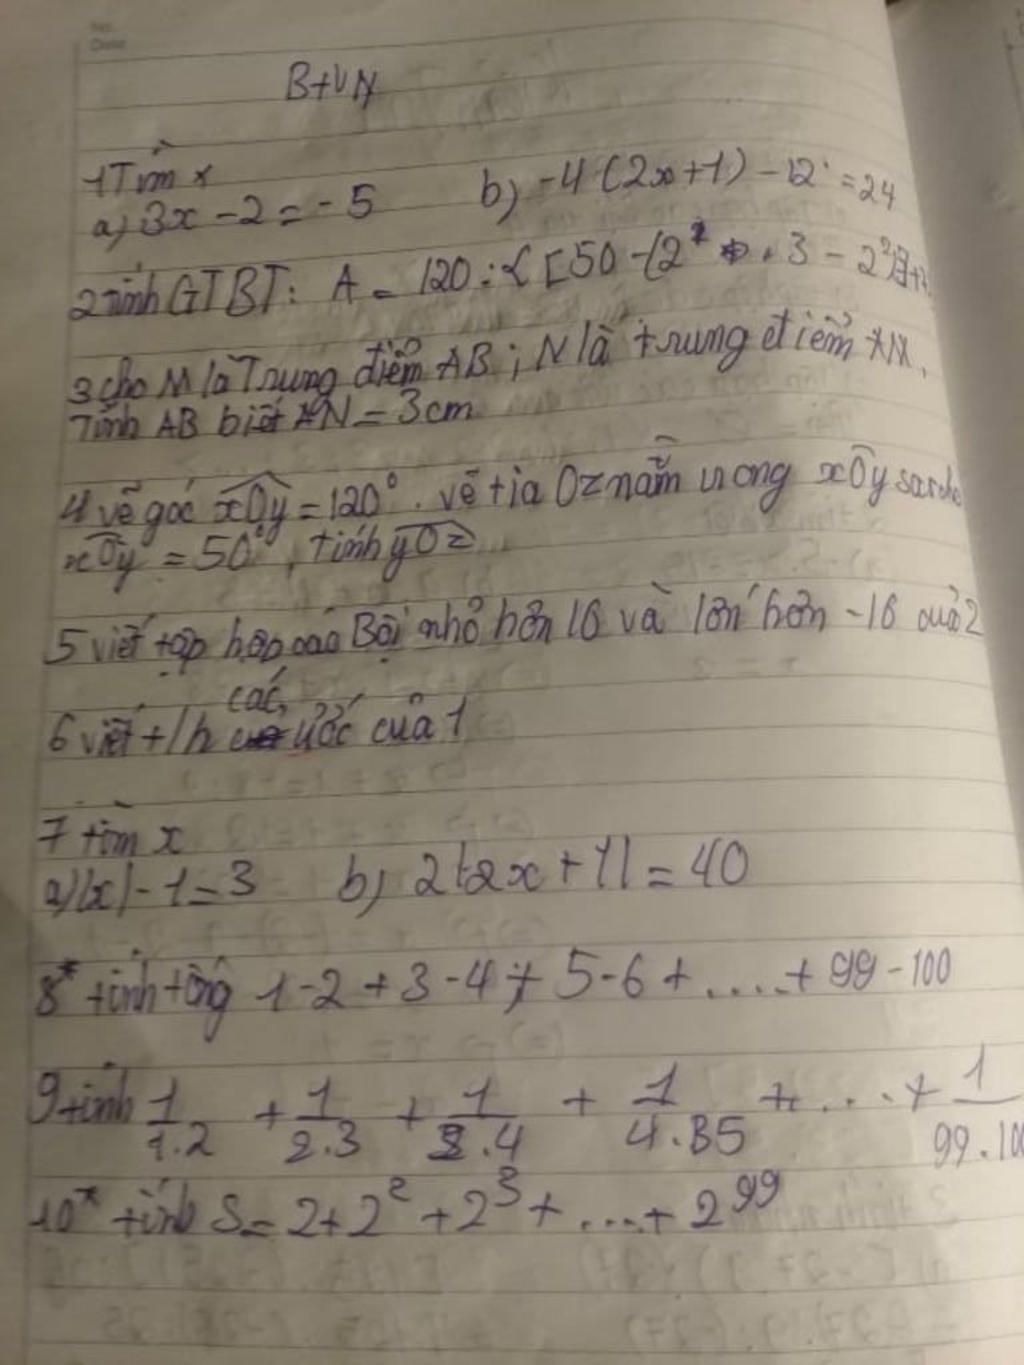 No.
Date
B+VN
1 Tìm x
a) 3x - 2 = - 5 b) -4 (2x+1) - 12 = 24
2 Tính GTBT: A = 120 : { [50 - (2² . 3 - 2²)]
3 cho M là Trung điểm AB ; N là trung điểm AM.
Tính AB biết AN = 3cm
4 vẽ góc xOy = 120°. vẽ tia Oz nằm xOy sao cho
xOy = 50°, tính yOz
5 viết tập hợp các Bội nhỏ hơn 16 và lớn hơn -16 của 2
các
6 viết t/h ước của 1
7 tìm x
a) |x| - 1 = 3 b) 2|-2x + 1| = 40
8* tính tổng 1 - 2 + 3 - 4 + 5 - 6 + .... + 99 - 100
9 tính 1/1.2 + 1/2.3 + 1/3.4 + 1/4.5 + ... + 1/99.100
10* tính S = 2 + 2² + 2³ + .... + 2⁹⁹